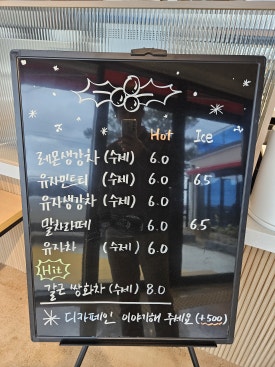 Hot Ice
레몬생강차 (수제) 6.0
유자민트티 (수제) 6.0 6.5
유자생강차 (수제) 6.0
말차라떼 6.0 6.5
유자차 (수제) 6.0
Hit
갈근 쌍화차 (수제) 8.0
디카페인 이야기해 주세요 (+500)